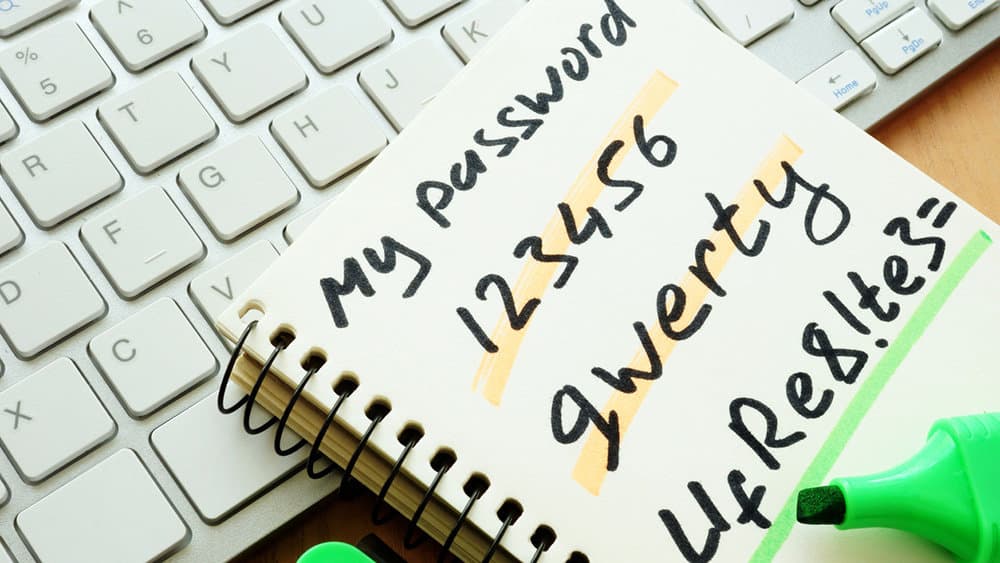 My password
123456
qwerty
UfRe8!te3=
^
6
U
K
%
5
Y
J
T
H
R
G
F
V
D
C
X
PgUp
PgDn
Home